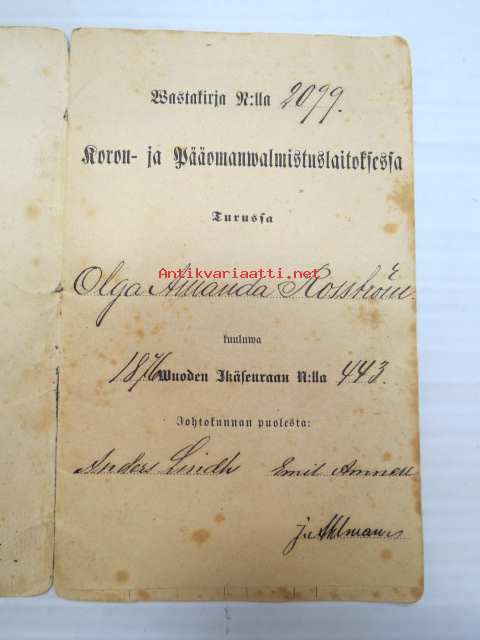 Wastakirja N:lla 2099.
Koron- ja Pääomanwalmistuslaitoksessa
Turussa
Antikvariaatti.net
Olga Amanda Rosström.
kuuluwa
1876 Wuoden Ikäseuraan N:lla 443.
Johtokunnan puolesta:
Anders Lindh Emil Ammell